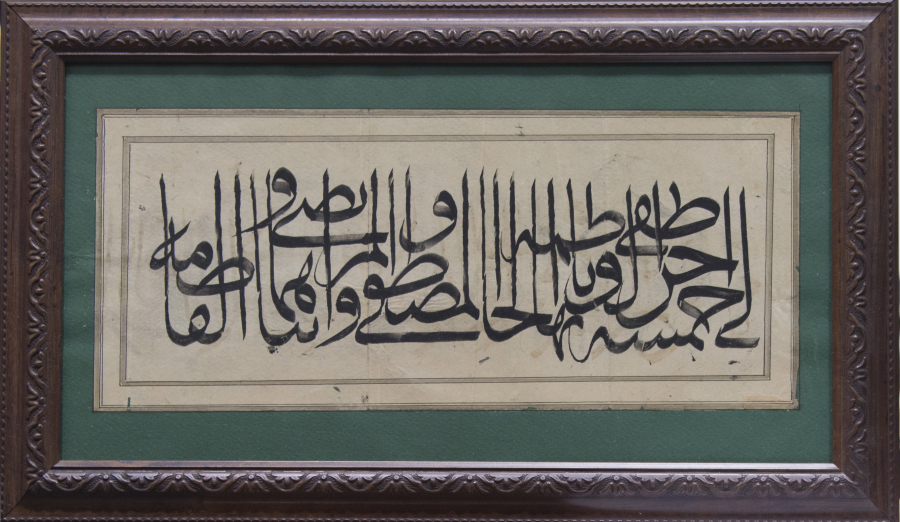 لي خمسة اطفي بها حر الوبا الحاطمه المصطفى و المرتضى و ابناهما و الفاطمه